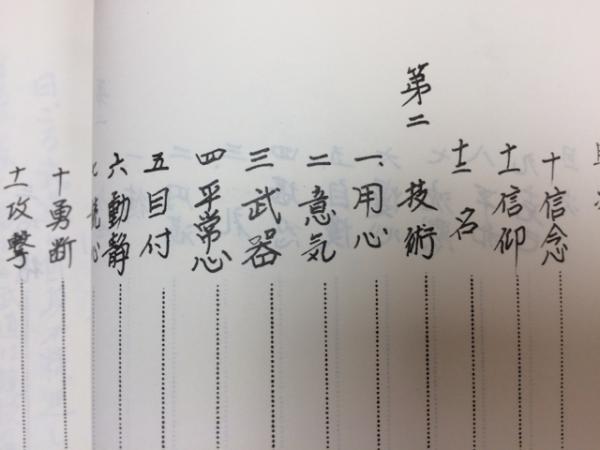 十 信念
十一 信仰
十二 名
第二 技術
一、用心
二 意気
三 武器
四 平常心
五 目付
六 動静
十 勇断
十一 攻撃